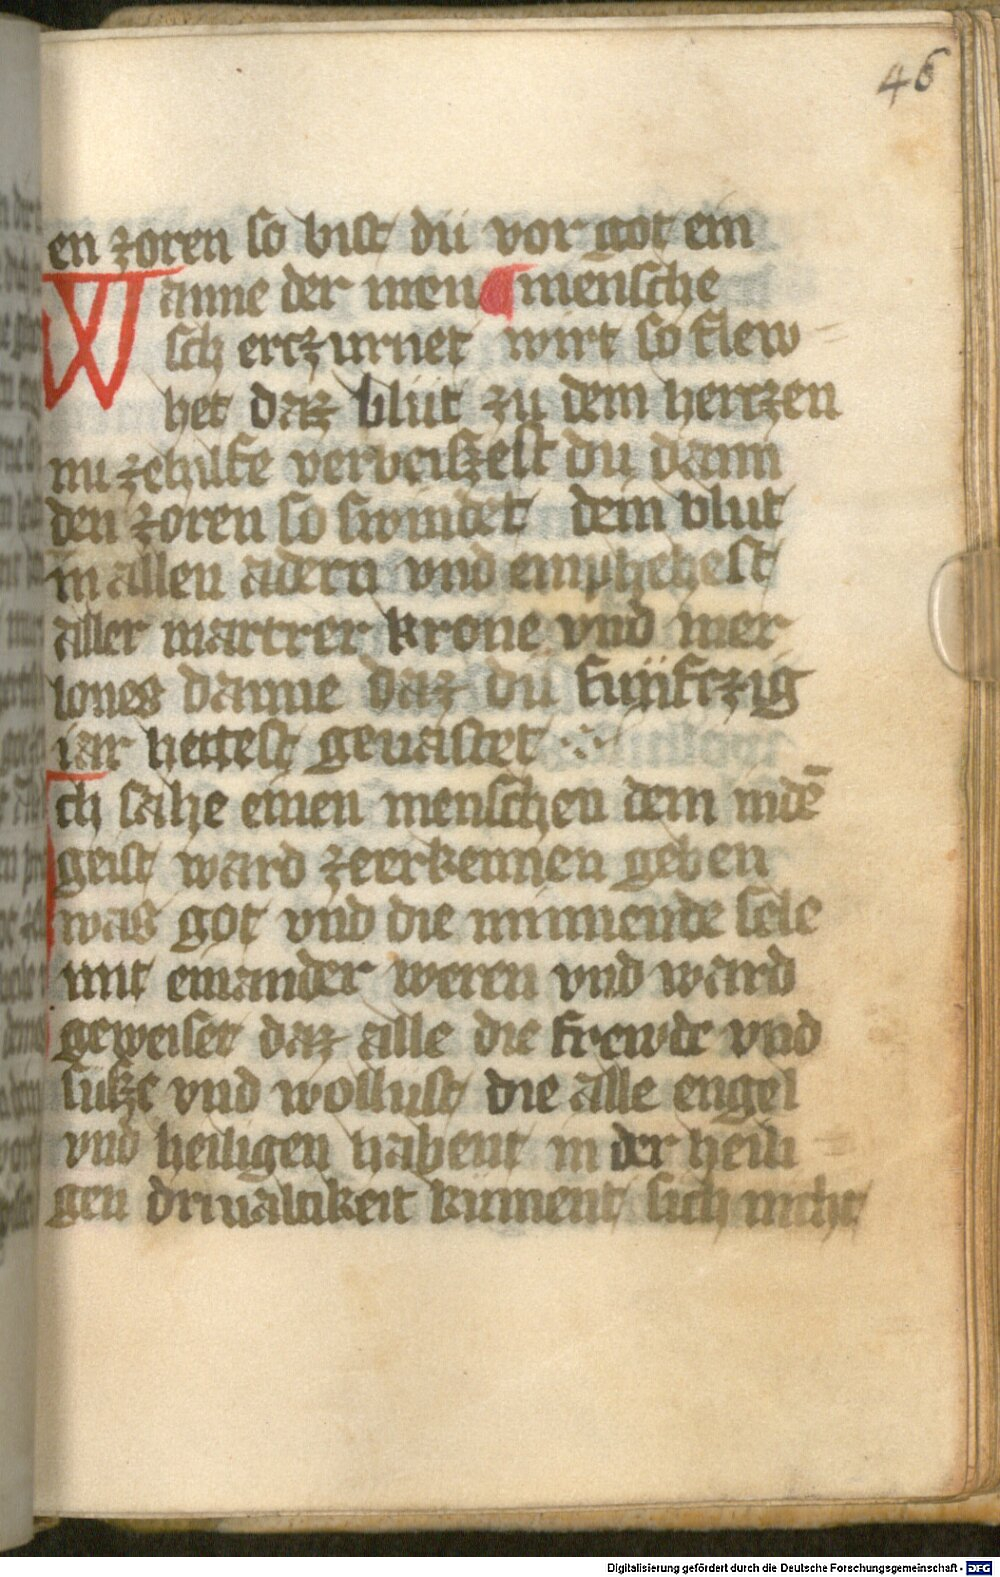 46
en zoren so bist dü vor got ein
Wanne der men mensche
sch erczurnet wirt so flew-
het daz blüt zu dem hertzen
im ze hilfe verbeiszest dü dann
den zoren so swindet dein blut
in allen adern vnd emphehest
aller martrer krone vnd mer
lones danne daz dü fünfczig
iar hettest geuastet
Ich sahe einen menschen dem indē
geist ward ze erkennen geben
was got vnd die minnende sele
mit einander weren vnd ward
geweiset daz alle die frewde vnd
süsze vnd wollust die alle engel
vnd heiligen habent in der heili
gen driualtikeit küment sich nicht
Digitalisierung gefördert durch die Deutsche Forschungsgemeinschaft - DFG